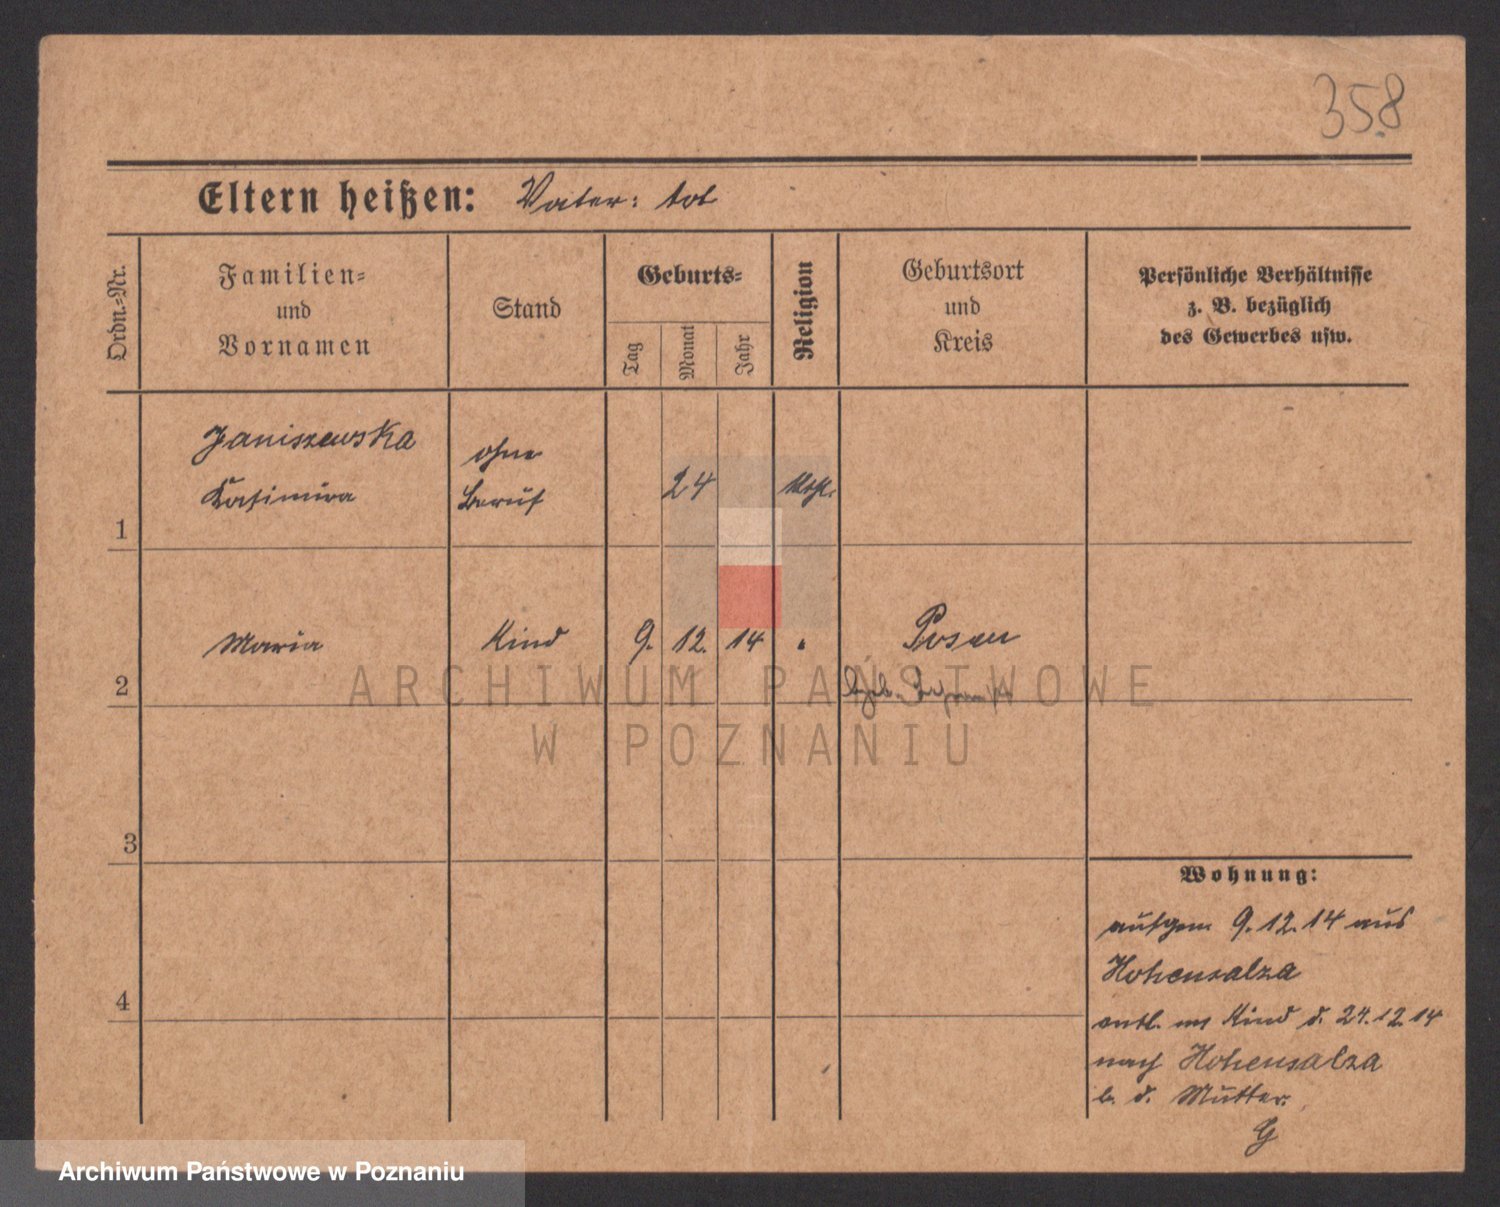 358
Eltern heißen: Vater: tot
Ordn.-Nr.
Familien-
und
Vornamen
Stand
Geburts-
Tag
Monat
Jahr
Religion
Geburtsort
und
Kreis
Persönliche Verhältnisse
z. B. bezüglich
des Gewerbes usw.
1
Janiszewska
Kasimira
ohne
Beruf
24
kath.
2
Maria
Kind
9. 12. 14
"
Posen
3
4
Wohnung:
aufgen 9.12.14 aus
Hohensalza
entl. m Kind d. 24.12.14
nach Hohensalza
b. d. Mutter.
G
ARCHIWUM PAŃSTWOWE
W POZNANIU
Archiwum Państwowe w Poznaniu